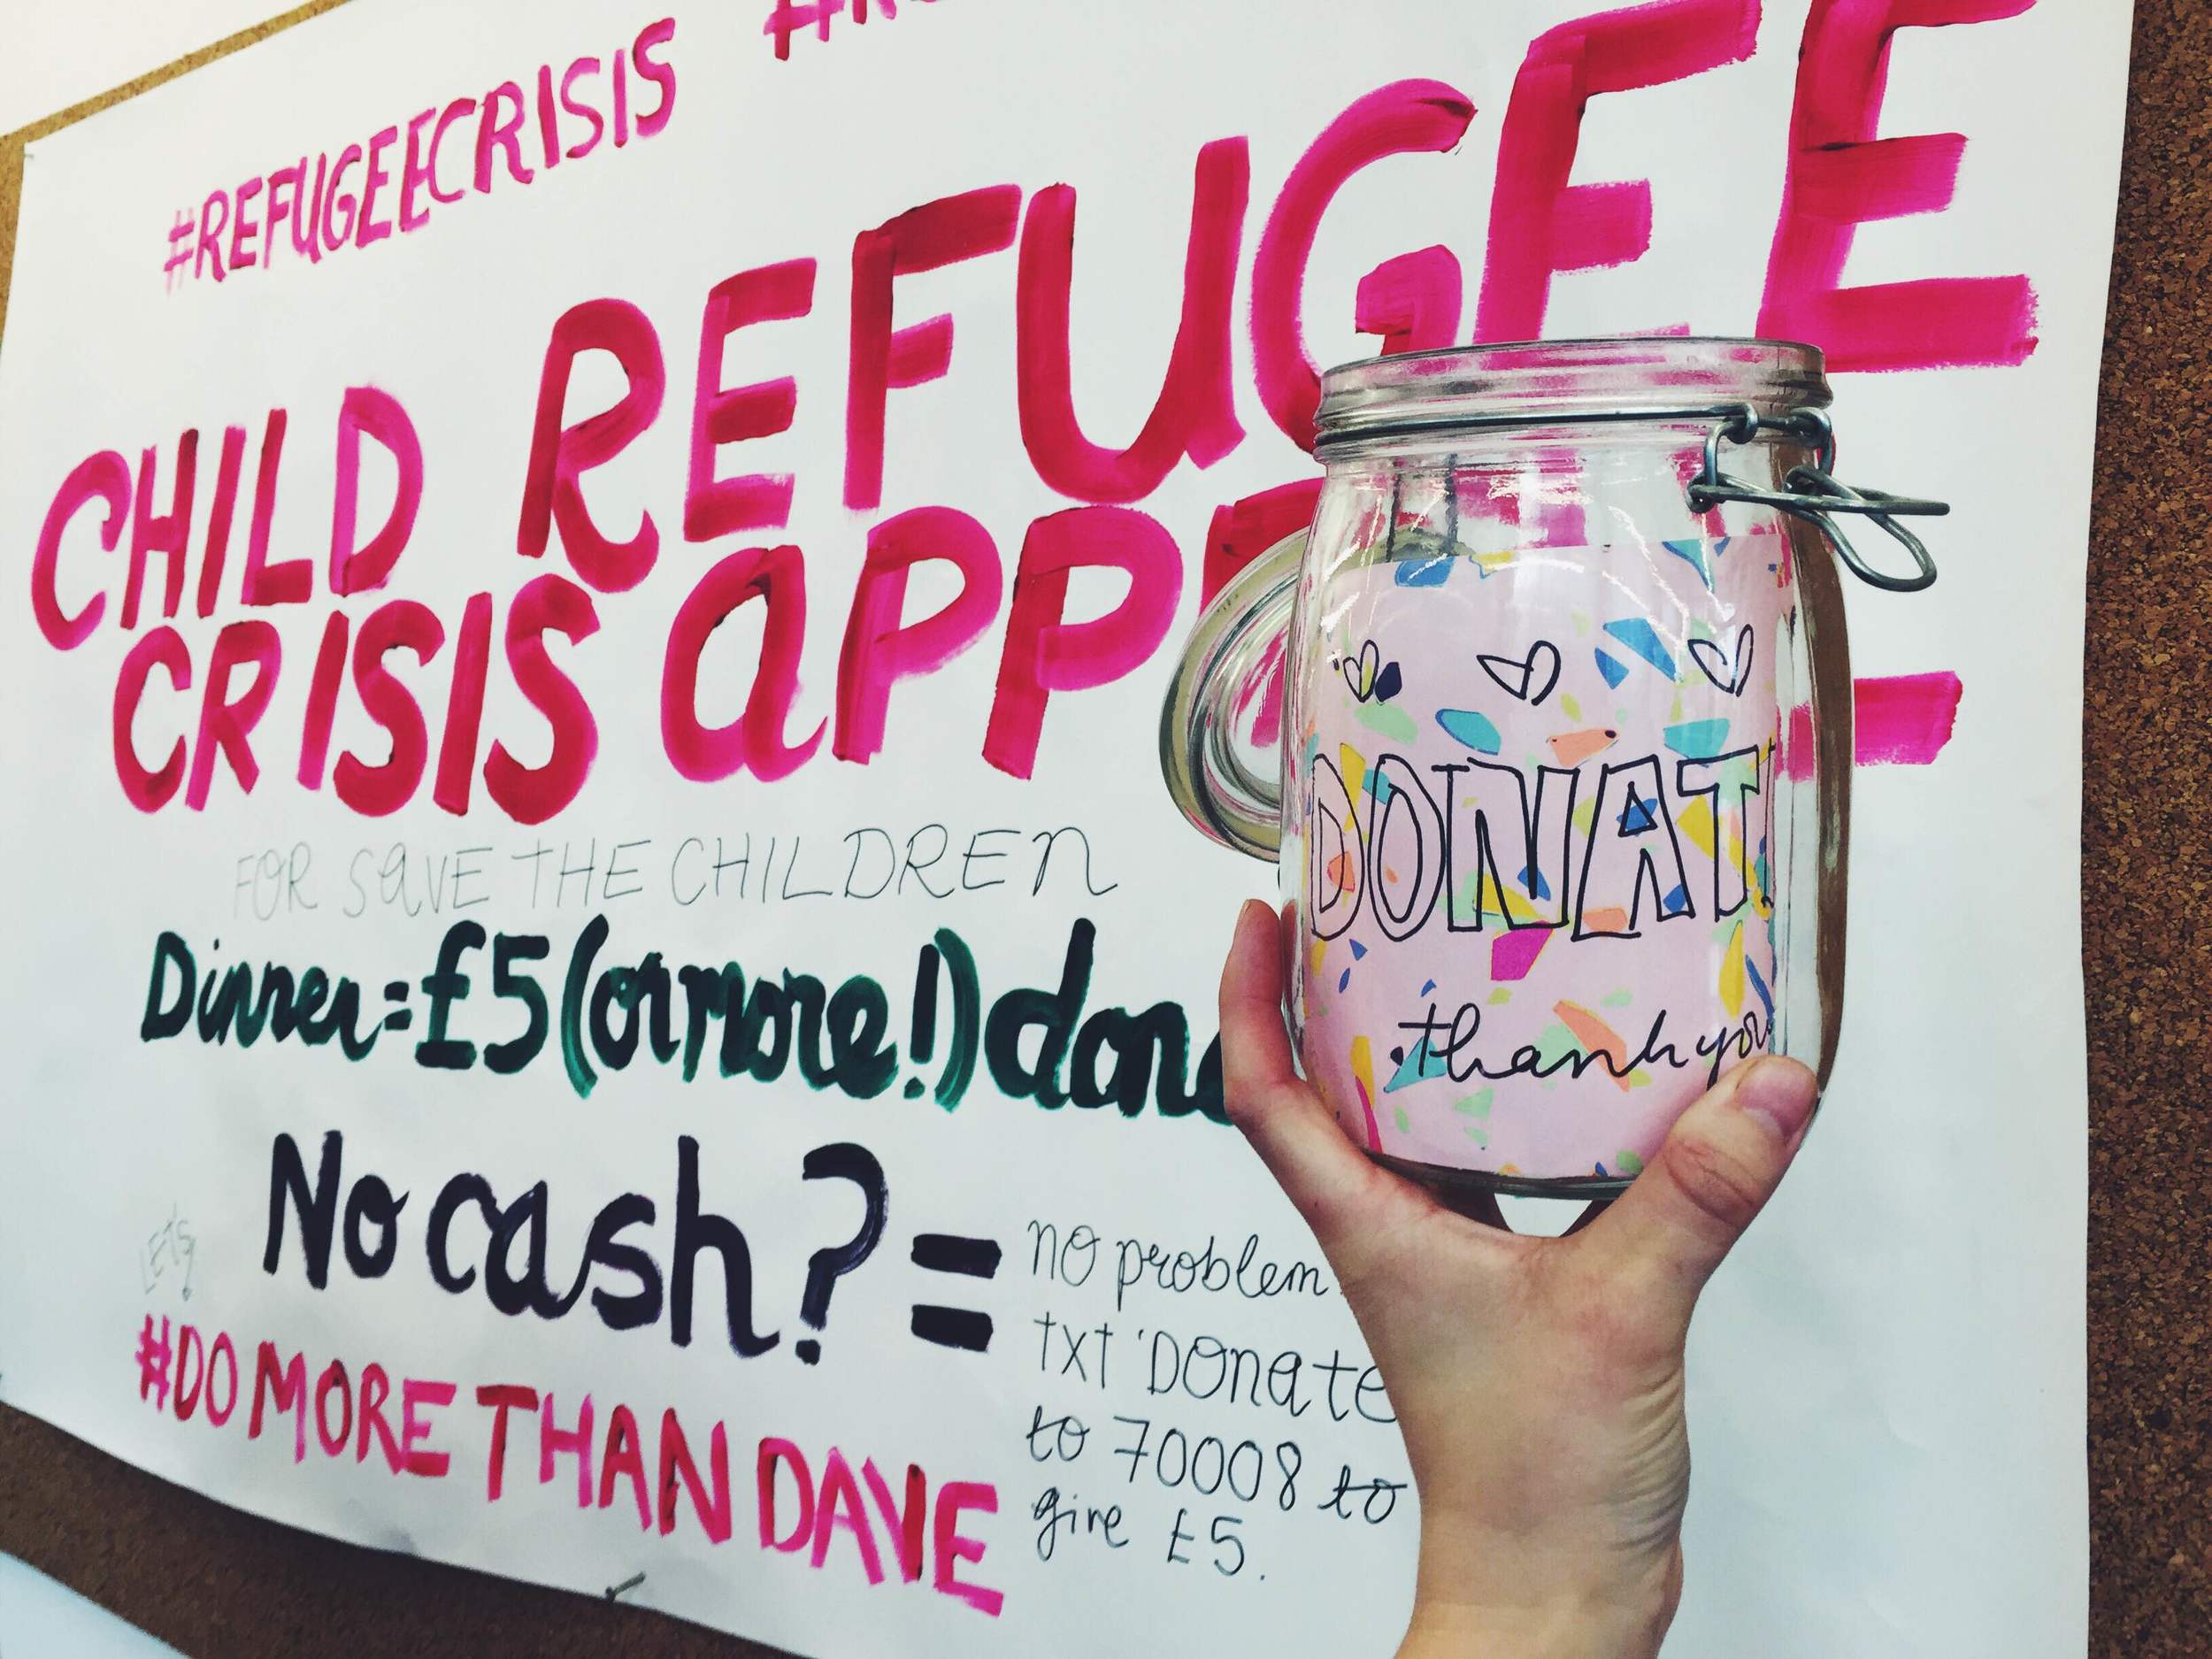 #REFUGEECRISIS
CHILD REFUGEE
CRISIS aPP
FOR SaVE THE CHILDREn
Dinner=£5(or more!)don
No cash?=
no problem
txt 'Donate
to 70008 to
give £5.
LET'S
#DO MORE THAN DAVE
DONAT
thank you